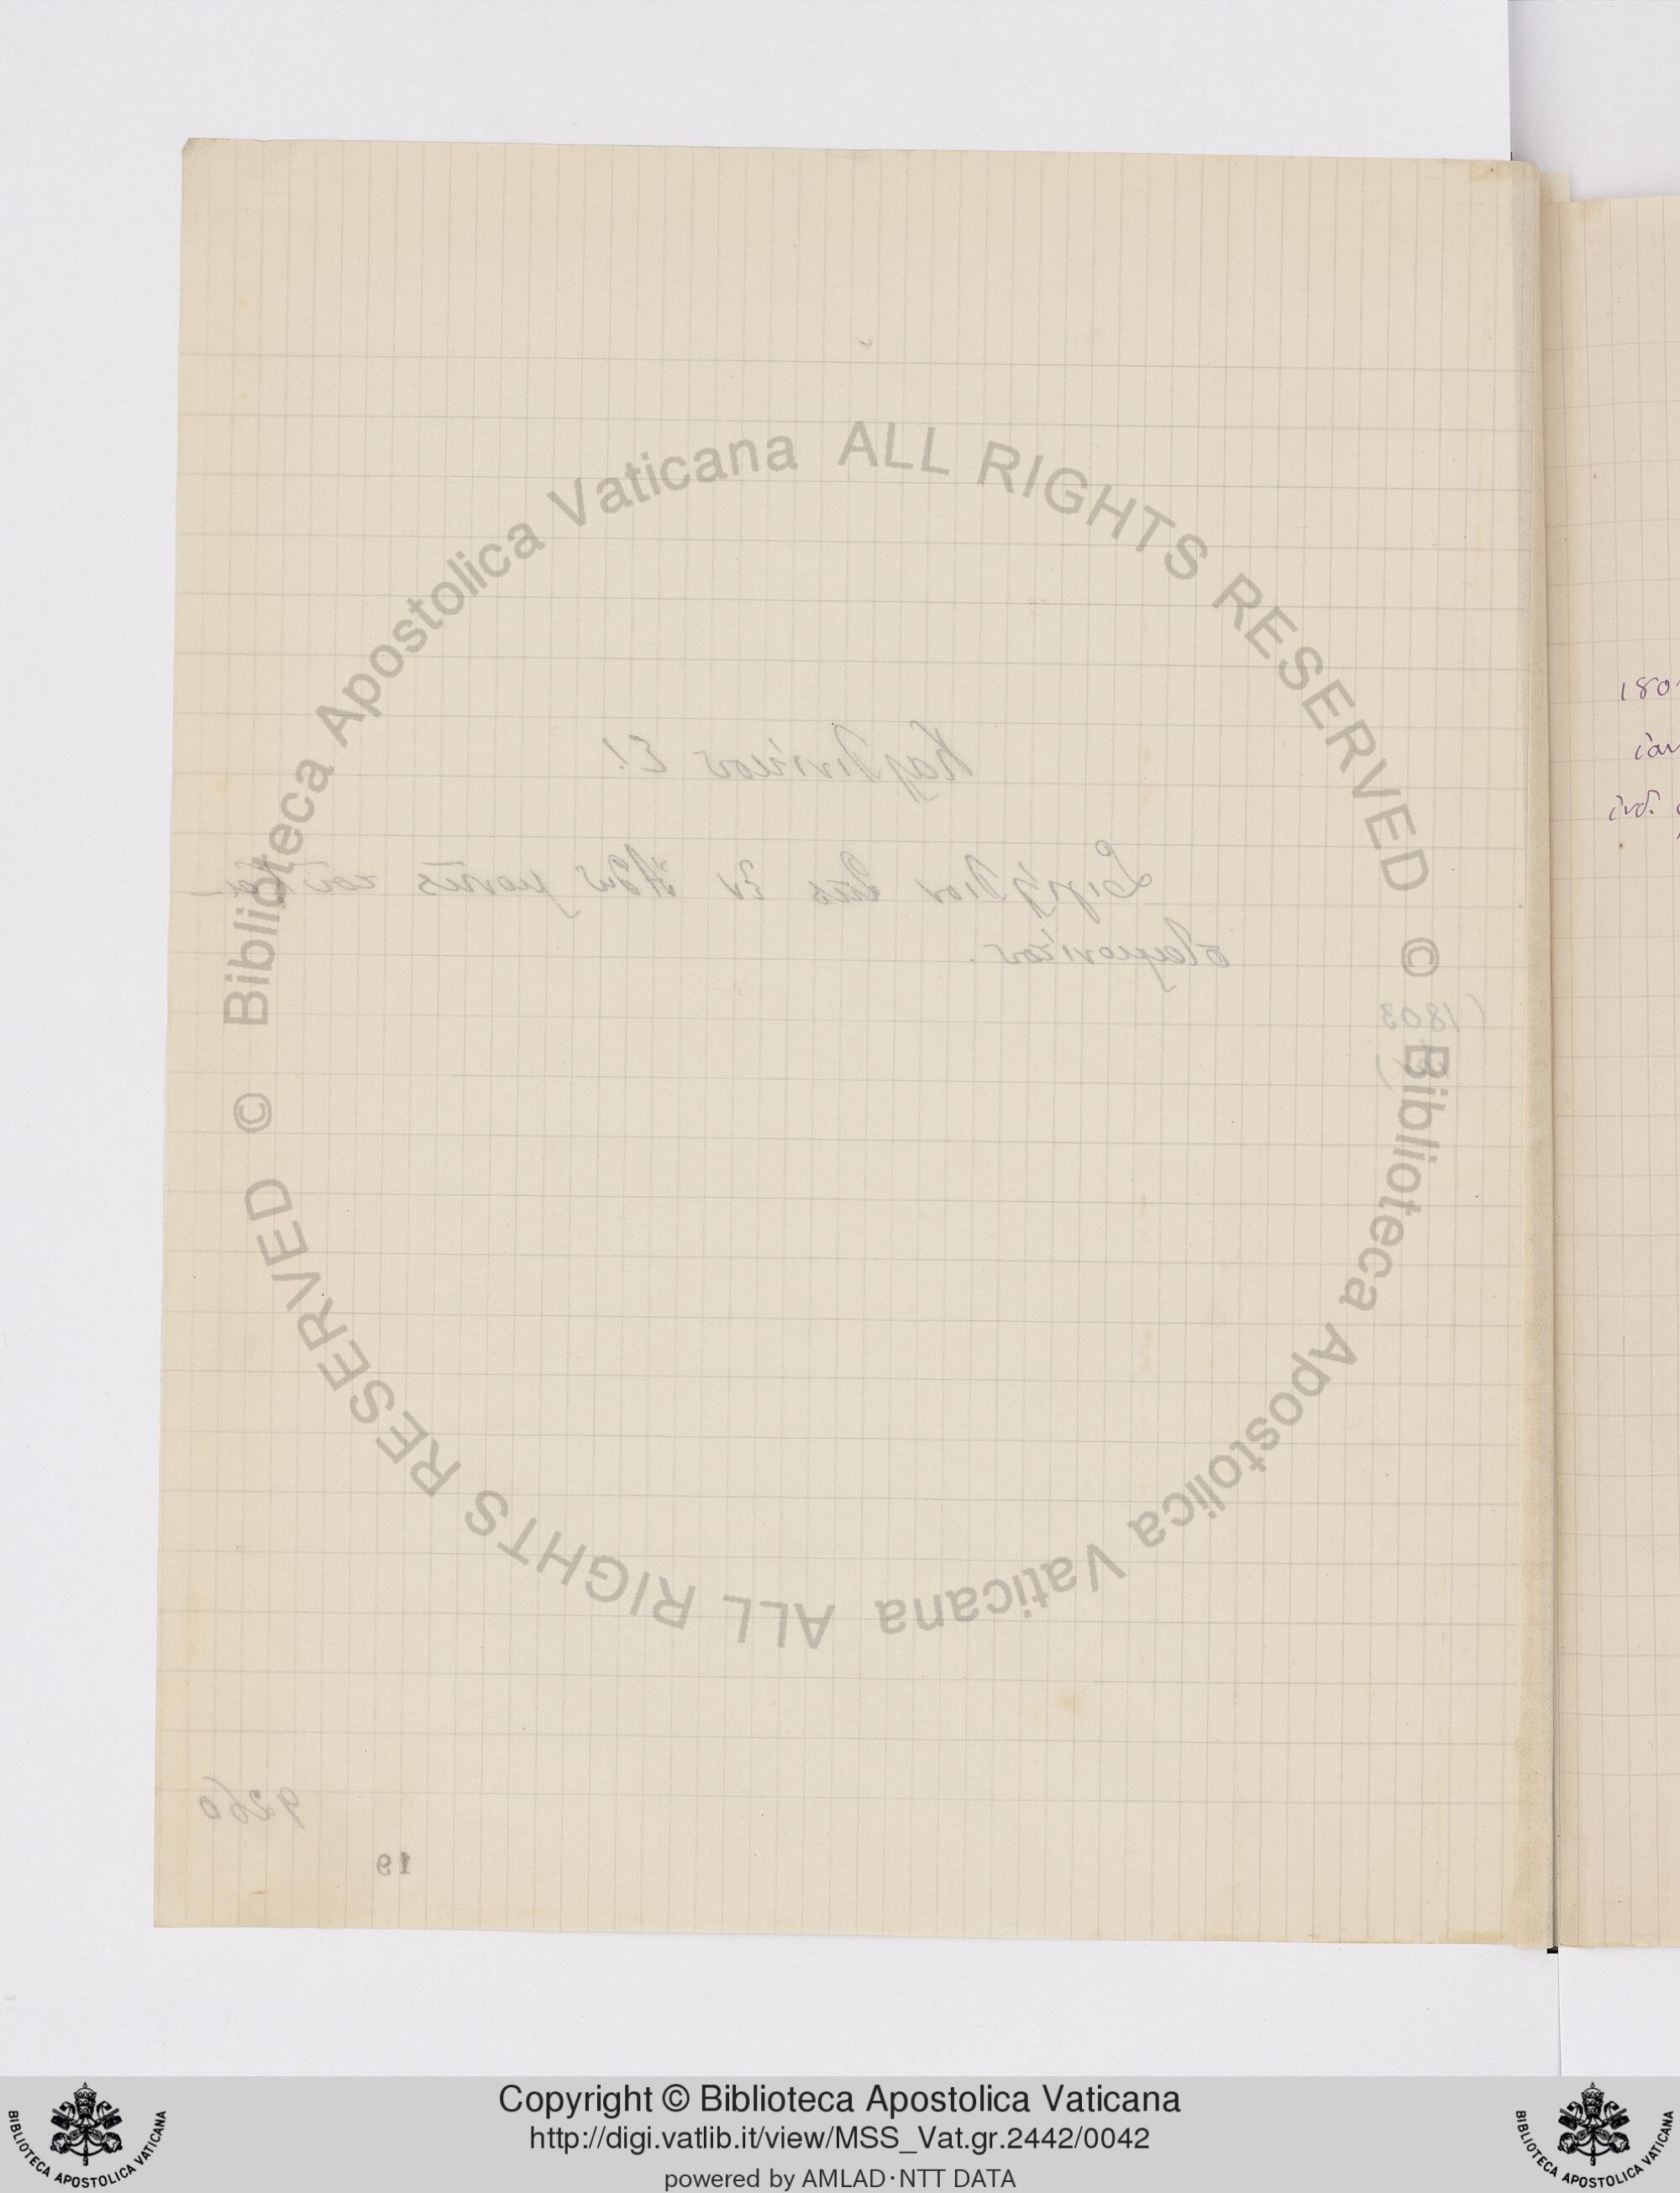 Καλλινίκου Ε!
Σιγίλλιον διὰ ἐν Ἄθῳ μονῆς τοῦ
(1803
9260
19
180
ἰαν
ἰνδ.
© Biblioteca Apostolica Vaticana ALL RIGHTS RESERVED
© Biblioteca Apostolica Vaticana ALL RIGHTS RESERVED
Copyright © Biblioteca Apostolica Vaticana
http://digi.vatlib.it/view/MSS_Vat.gr.2442/0042
powered by AMLAD·NTT DATA
BIBLIOTECA APOSTOLICA VATICANA
BIBLIOTECA APOSTOLICA VATICANA